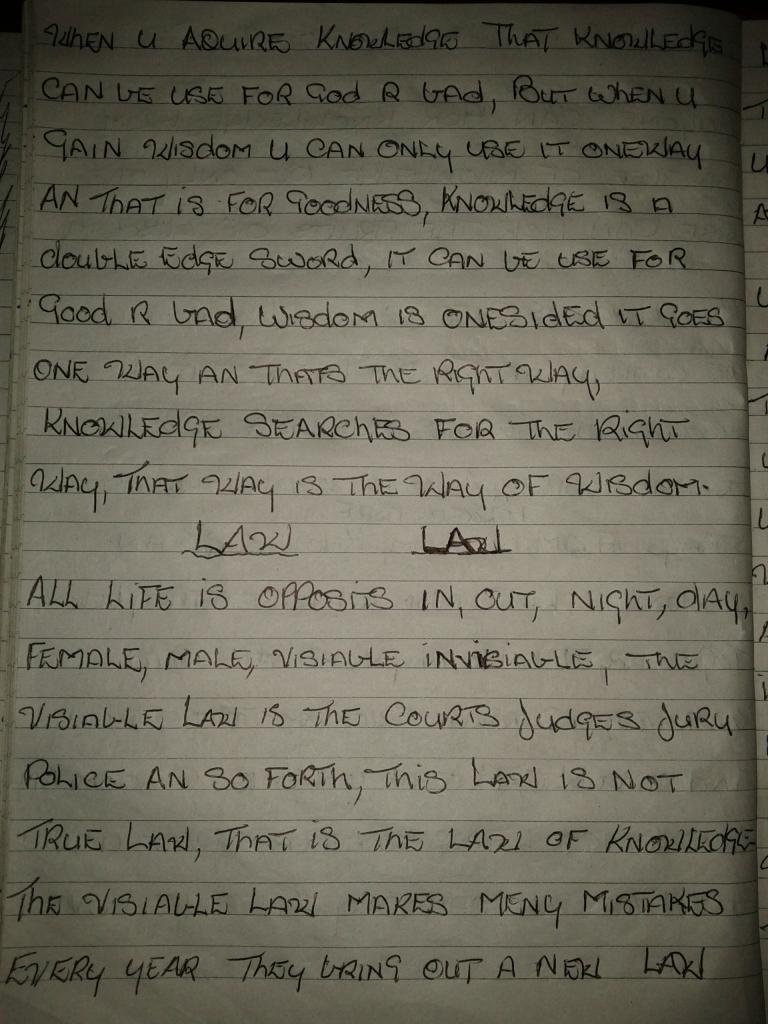 WHEN U AQUIRE KNOWLEDGE THAT KNOWLEDGE
CAN BE USE FOR GOD R BAD, BUT WHEN U
GAIN WISDOM U CAN ONLY USE IT ONEWAY
AN THAT IS FOR GOODNESS, KNOWLEDGE IS A
dOUBLE EDGE SWORD, IT CAN BE USE FOR
GOOD R BAD, WISDOM IS ONESIDED IT GOES
ONE WAY AN THATS THE RIGHT WAY,
KNOWLEDGE SEARCHES FOR THE RIGHT
WAY, THAT WAY IS THE WAY OF WISDOM.
LAW LAW
ALL LIFE IS OPPOSITS IN, OUT, NIGHT, DAY,
FEMALE, MALE, VISIABLE INVISIABLE, THE
VISIABLE LAW IS THE COURTS JUDGES JURY
POLICE AN SO FORTH, THIS LAW IS NOT
TRUE LAW, THAT IS THE LAW OF KNOWLEDGE
THE VISIABLE LAW MAKES MENY MISTAKES
EVERY YEAR THEY BRING OUT A NEW LAW